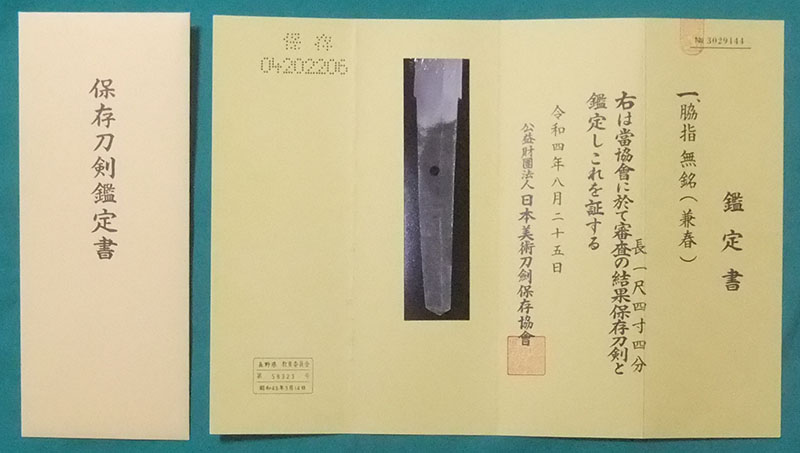 保存刀剣鑑定書
№ 3029144
鑑定書
一、脇指 無銘(兼春)
長一尺四寸四分
右は當協會に於て審査の結果保存刀剣と
鑑定しこれを証する
令和四年八月二十五日
公益財團法人 日本美術刀劍保存協會
保存
04202206
長野県 教育委員会
第 58323 号